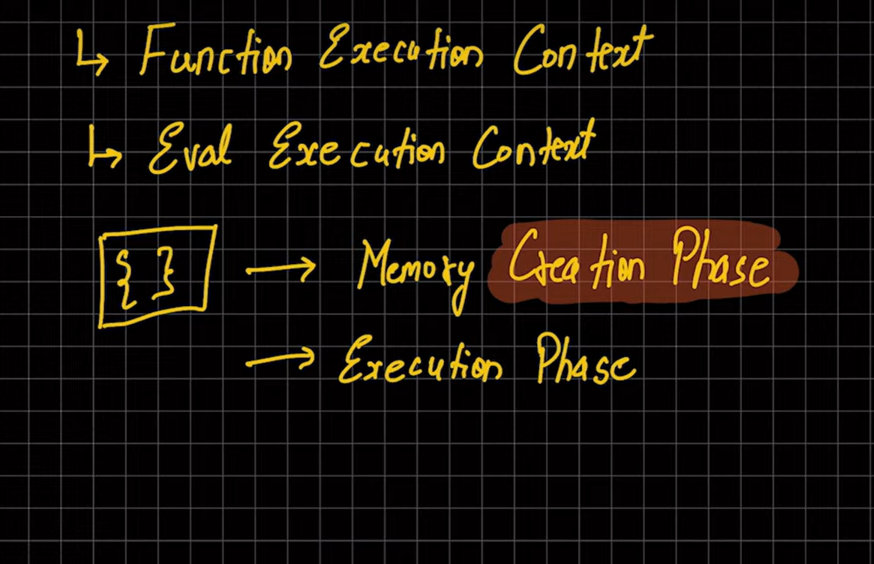 ↳ Function Execution Context
↳ Eval Execution Context
{ } → Memory Creation Phase
→ Execution Phase